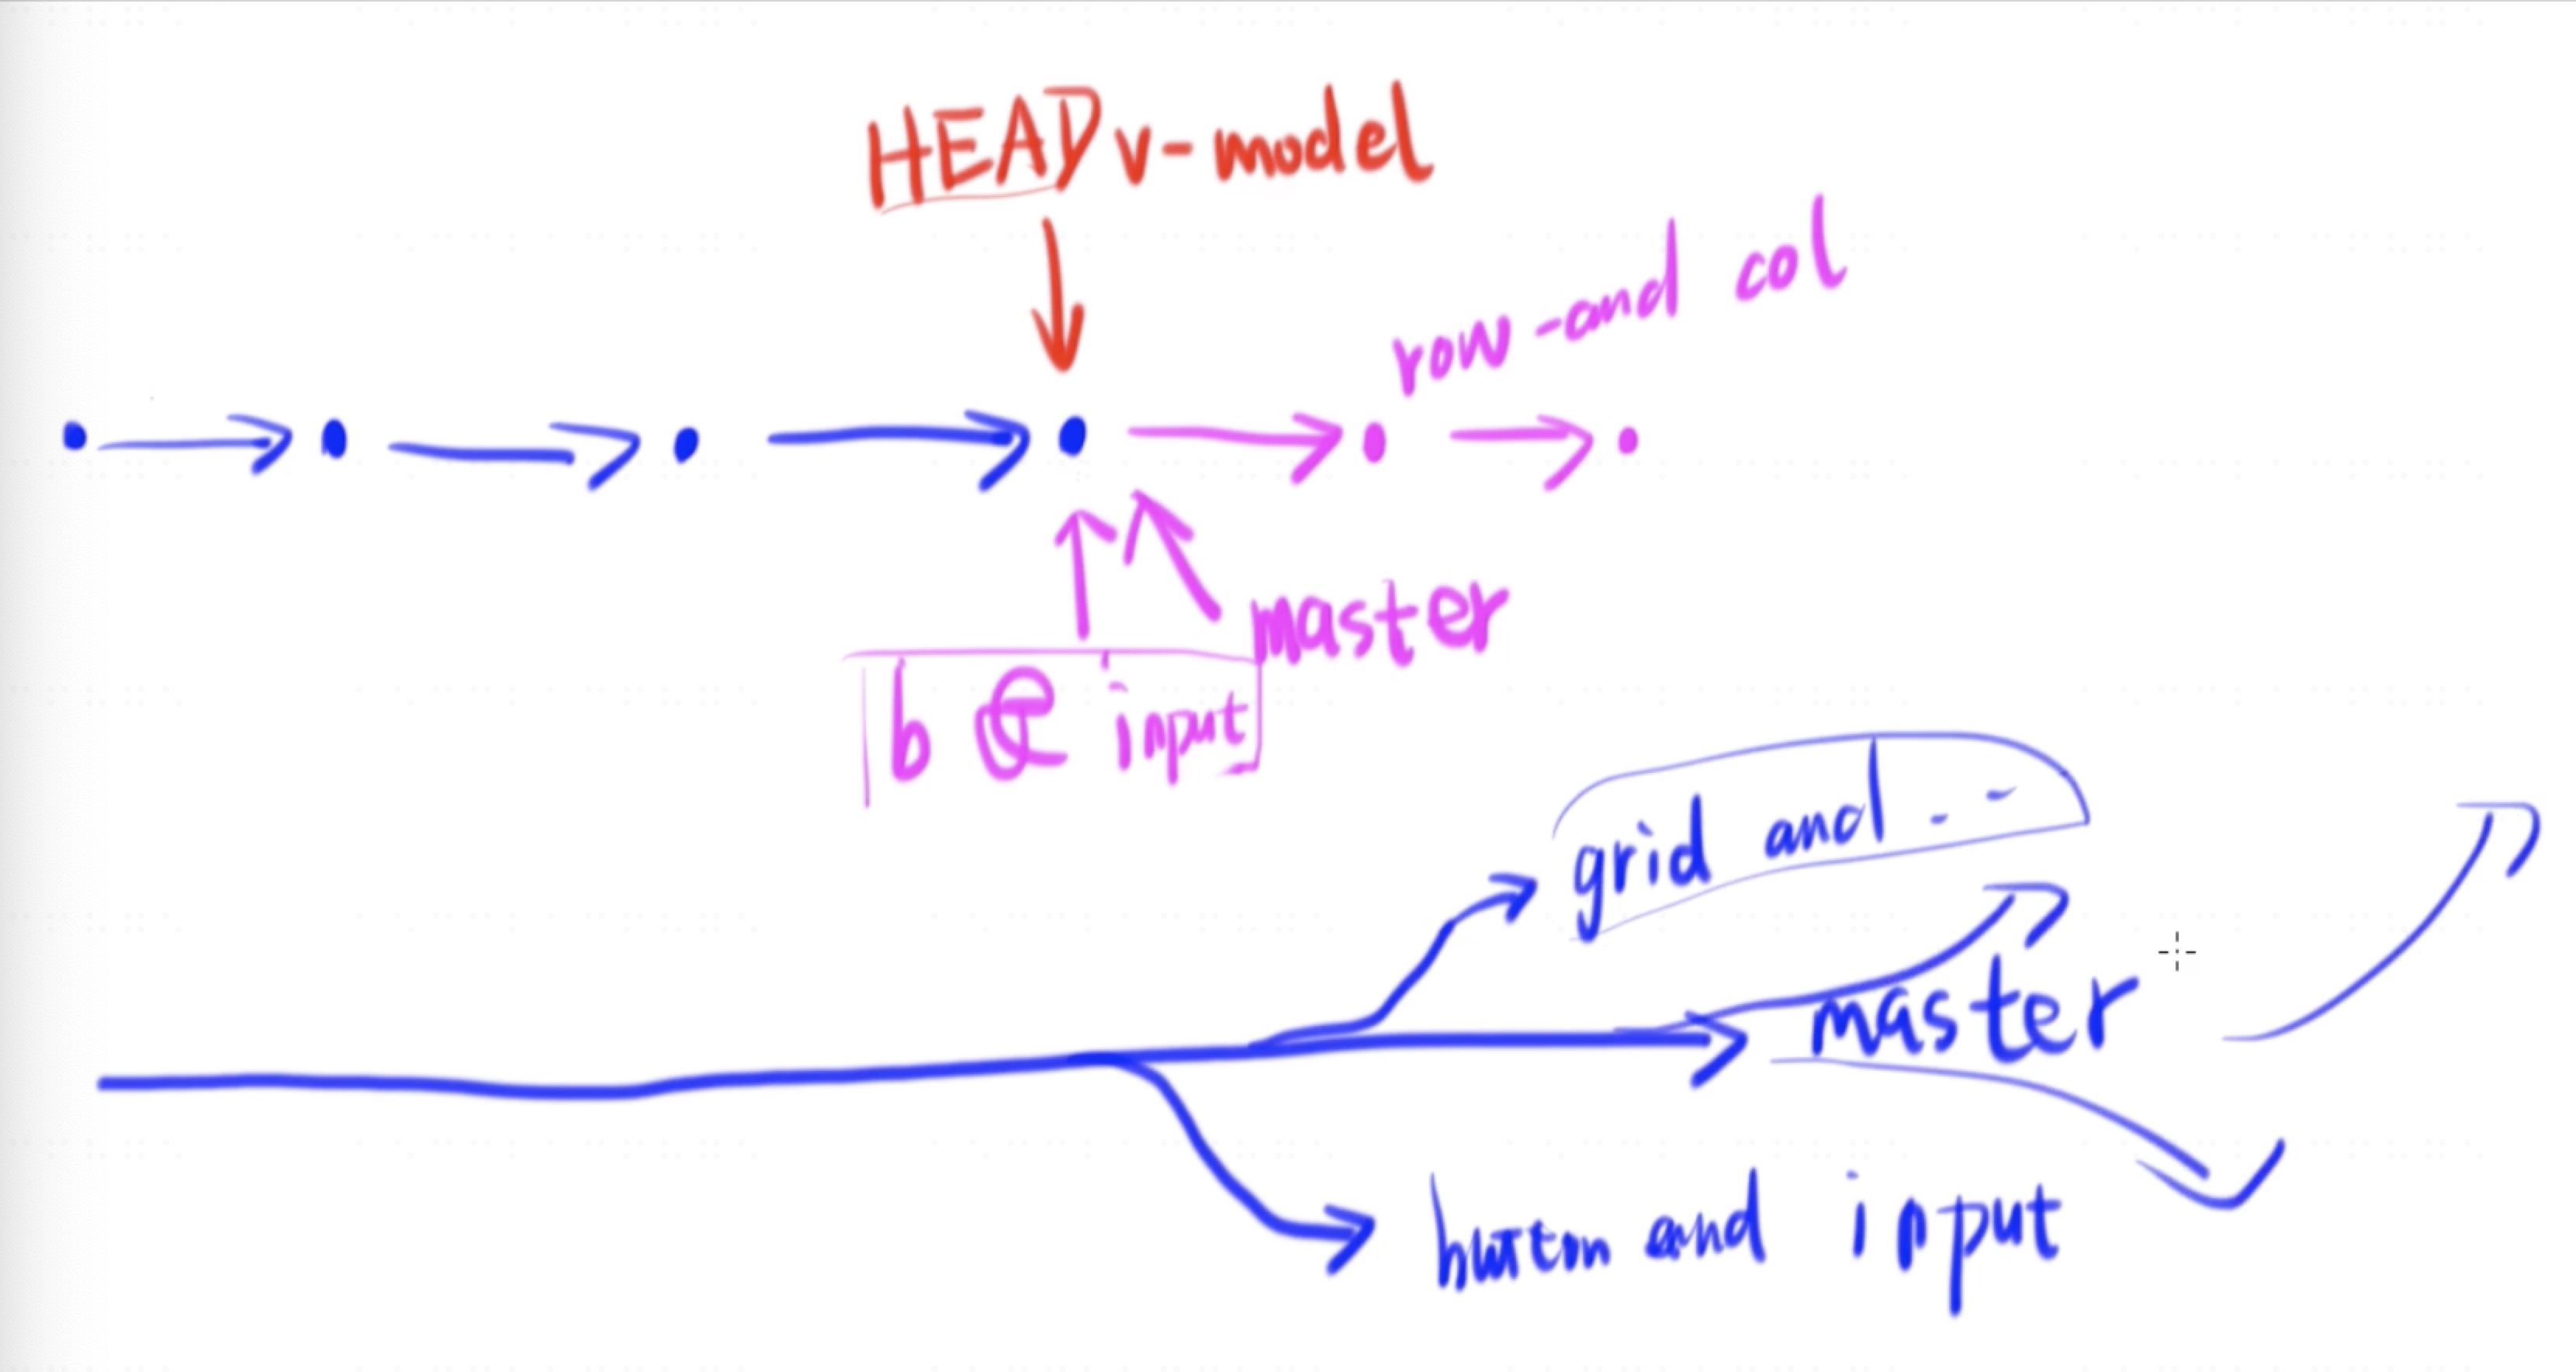 HEAD v-model
row-and col
master
b @ input
grid and --
master
button and input